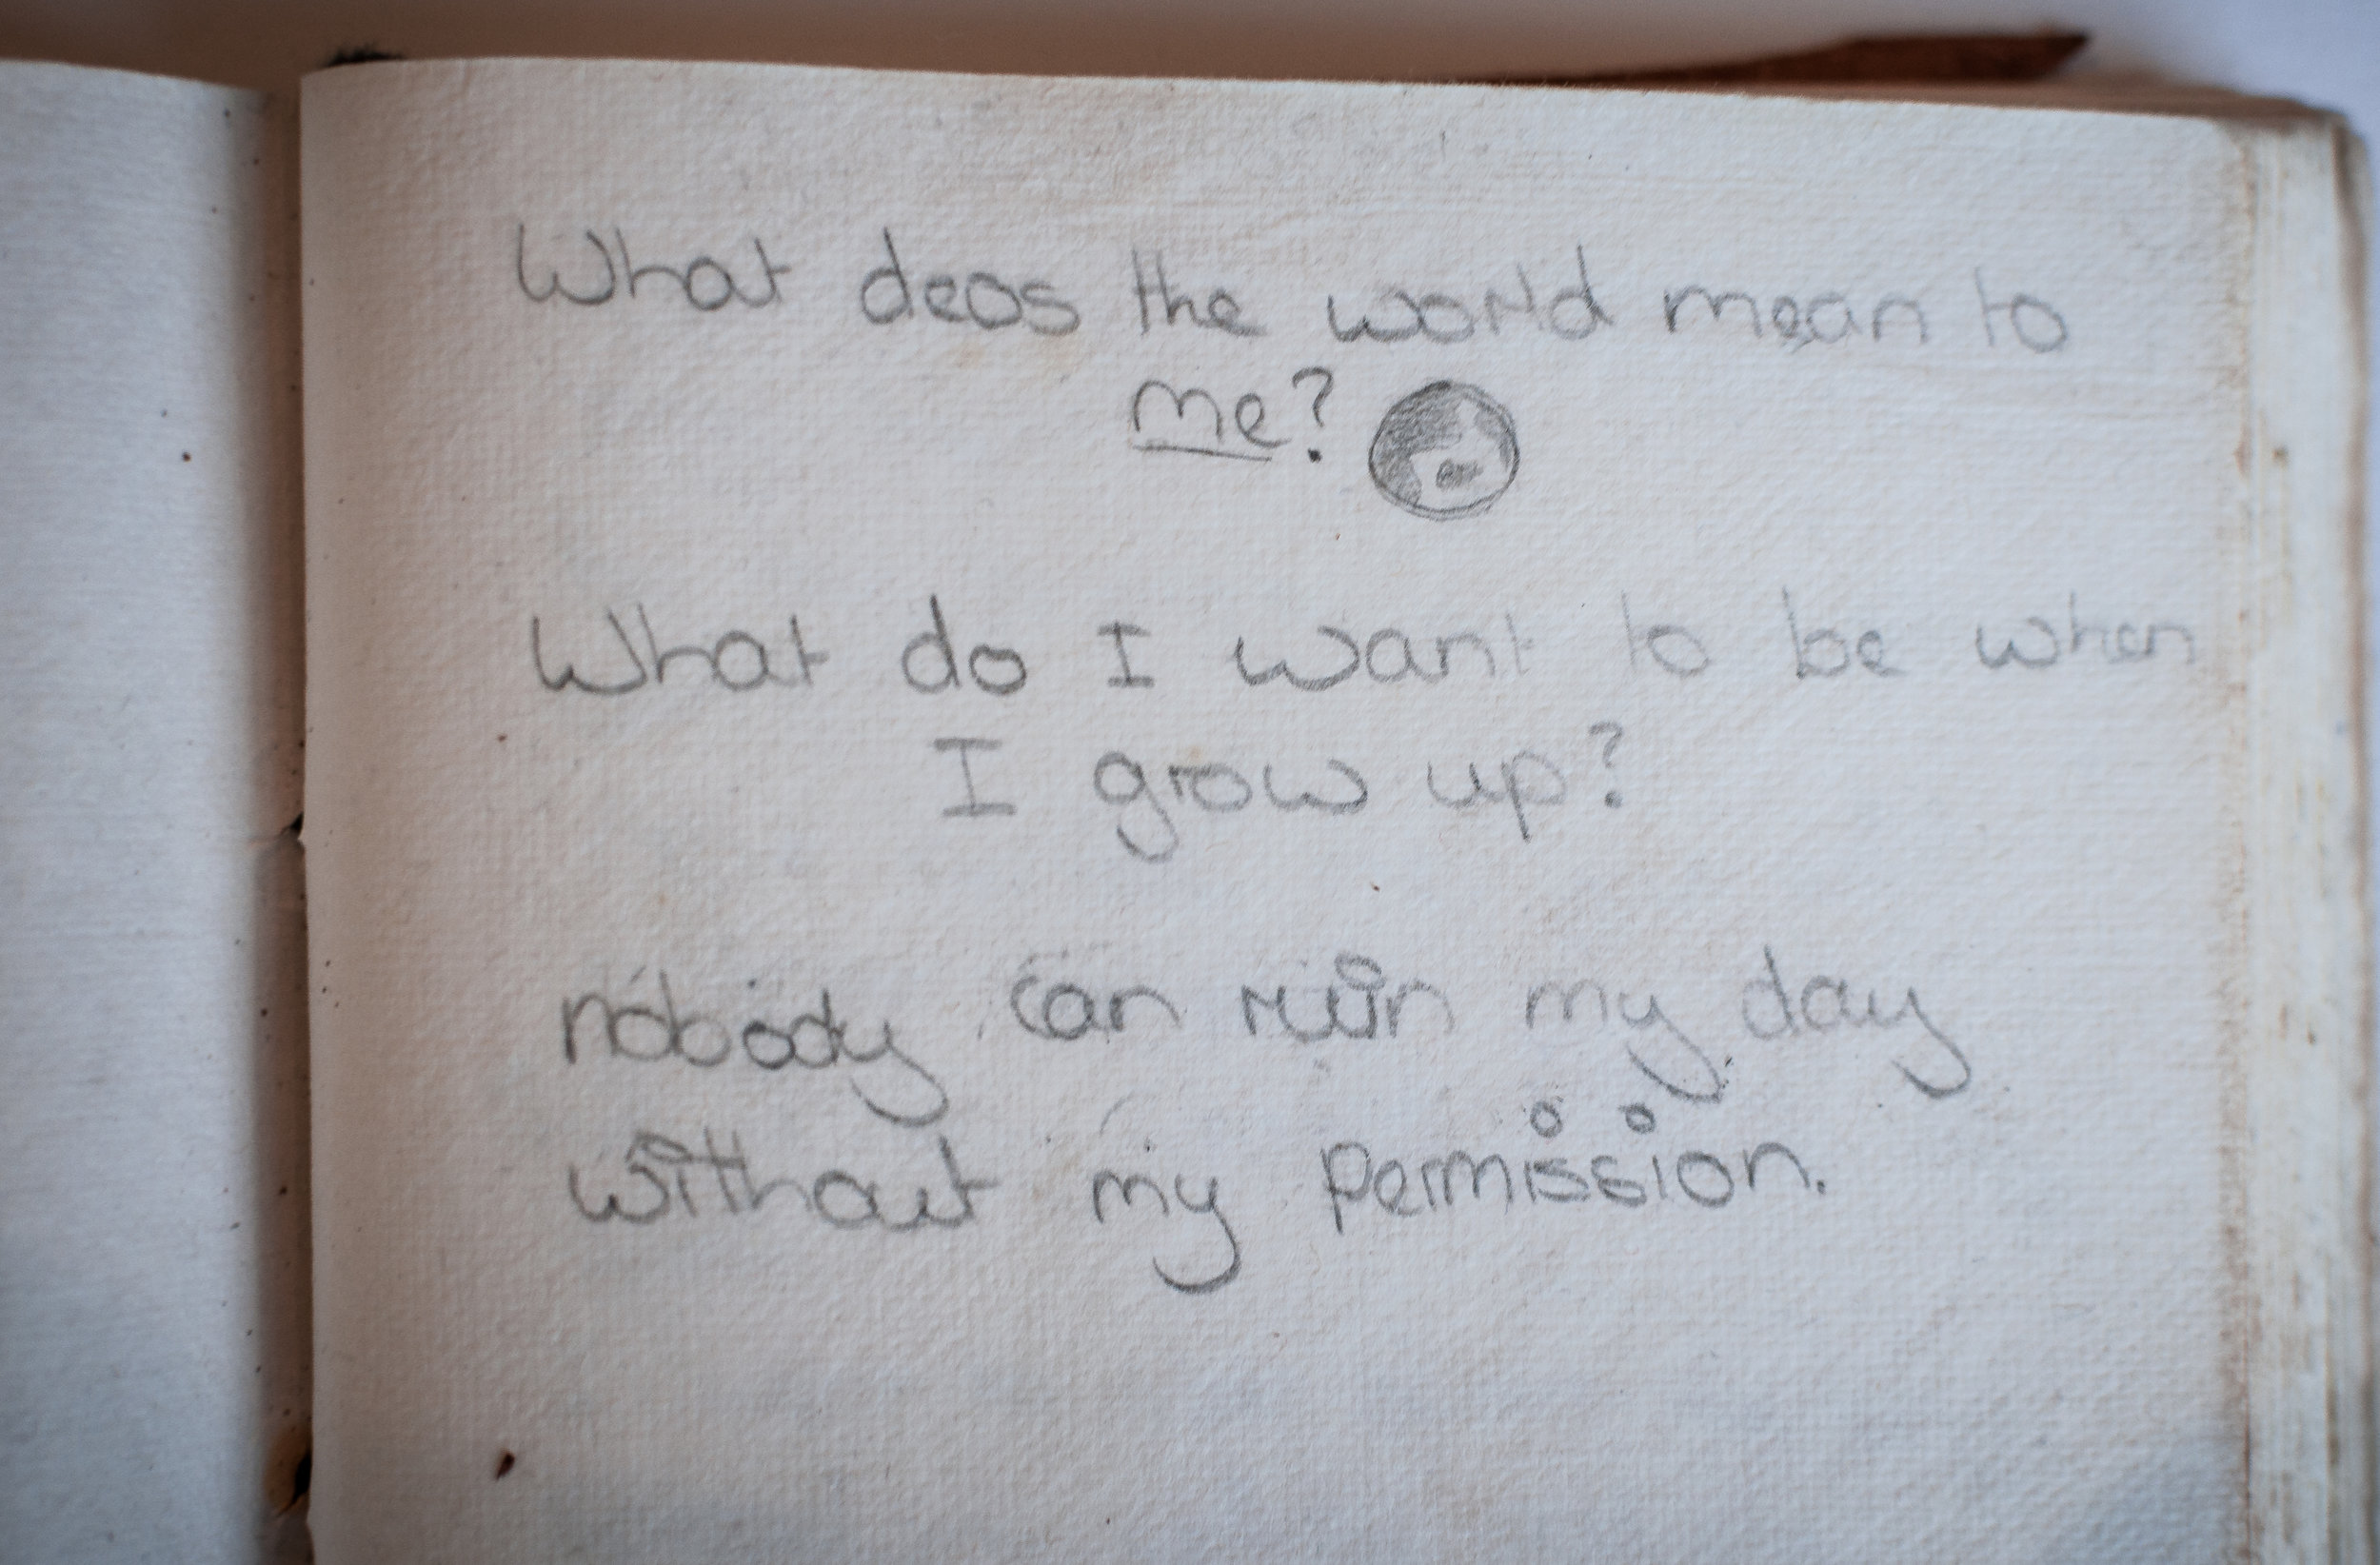 What deos the world mean to
me?
What do I want to be when
I grow up?
nobody can ruin my day
without my permission.